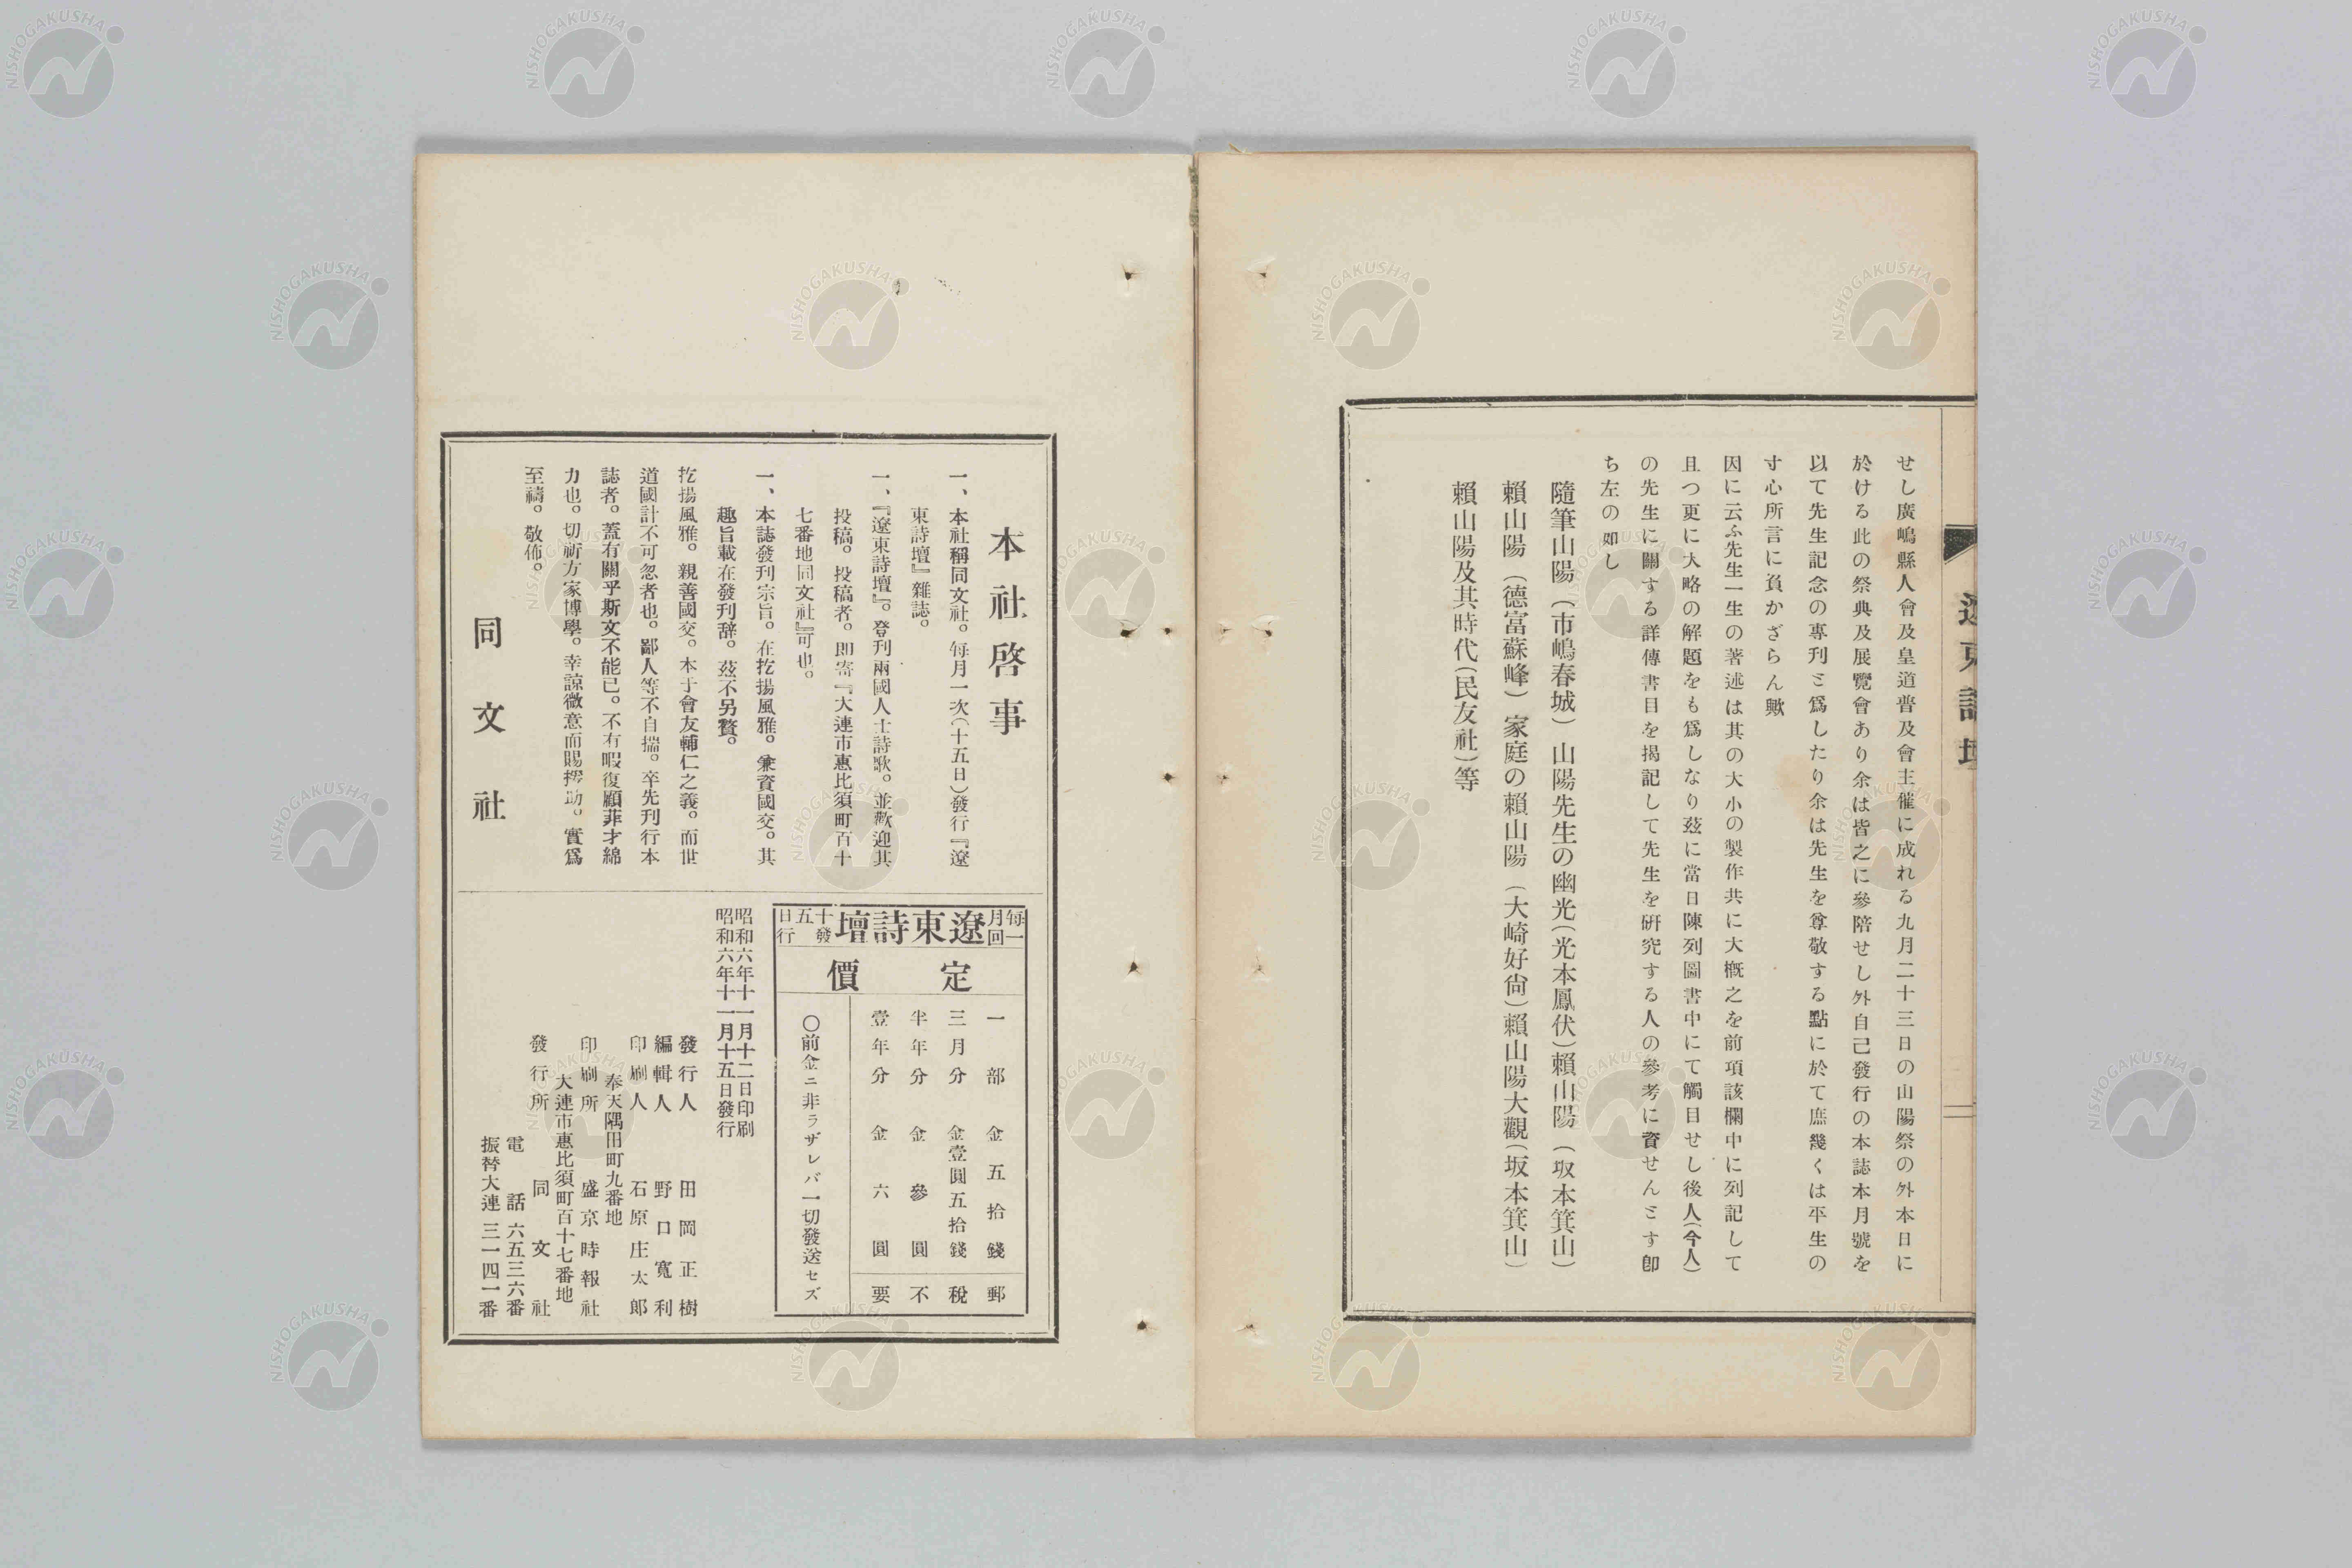 遼東詩壇
せし廣嶋縣人會及皇道普及會主催に成れる九月二十三日の山陽祭の外本日に
於ける此の祭典及展覽會あり余は皆之に參陪せし外自己發行の本誌本月號を
以て先生記念の專刊と爲したり余は先生を尊敬する點に於て庶幾くは平生の
寸心所言に負かざらん歟
因に云ふ先生一生の著述は其の大小の製作共に大概之を前項該欄中に列記して
且つ更に大略の解題をも爲しなり玆に當日陳列圖書中にて觸目せし後人(今人)
の先生に關する詳傳書目を揭記して先生を硏究する人の參考に資せんとす卽
ち左の如し
隨筆山陽(市嶋春城) 山陽先生の幽光(光本鳳伏)賴山陽(坂本箕山)
賴山陽(德富蘇峰) 家庭の賴山陽(大崎好尙)賴山陽大觀(坂本箕山)
賴山陽及其時代(民友社)等
本社啓事
一、本社稱同文社。每月一次(十五日)發行『遼
東詩壇』雜誌。
一、『遼東詩壇』。登刊兩國人士詩歌。並歡迎其
投稿。投稿者。卽寄『大連市惠比須町百十
七番地同文社』可也。
一、本誌發刊宗旨。在扢揚風雅。兼資國交。其
趣旨載在發刊辞。玆不另贅。
扢揚風雅。親善國交。本于會友輔仁之義。而世
道國計不可忽者也。鄙人等不自揣。卒先刊行本
誌者。蓋有關乎斯文不能已。不有暇復顧菲才綿
力也。切祈方家博學。幸諒微意而賜捊助。實爲
至禱。敬佈。
同文社
每月一回
遼東詩壇
十五日發行
定價
一部 金五拾錢 郵
三月分 金壹圓五拾錢 稅
半年分 金參圓 不
壹年分 金六圓 要
〇前金ニ非ラザレバ一切發送セズ
昭和六年十一月十二日印刷
昭和六年十一月十五日發行
發行人 田岡正樹
編輯人 野口寬利
印刷人 石原庄太郎
奉天隅田町九番地
印刷所 盛京時報社
大連市惠比須町百十七番地
發行所 同文社
電話六五三六番
振替大連三一四一番
NISHOGAKUSHA